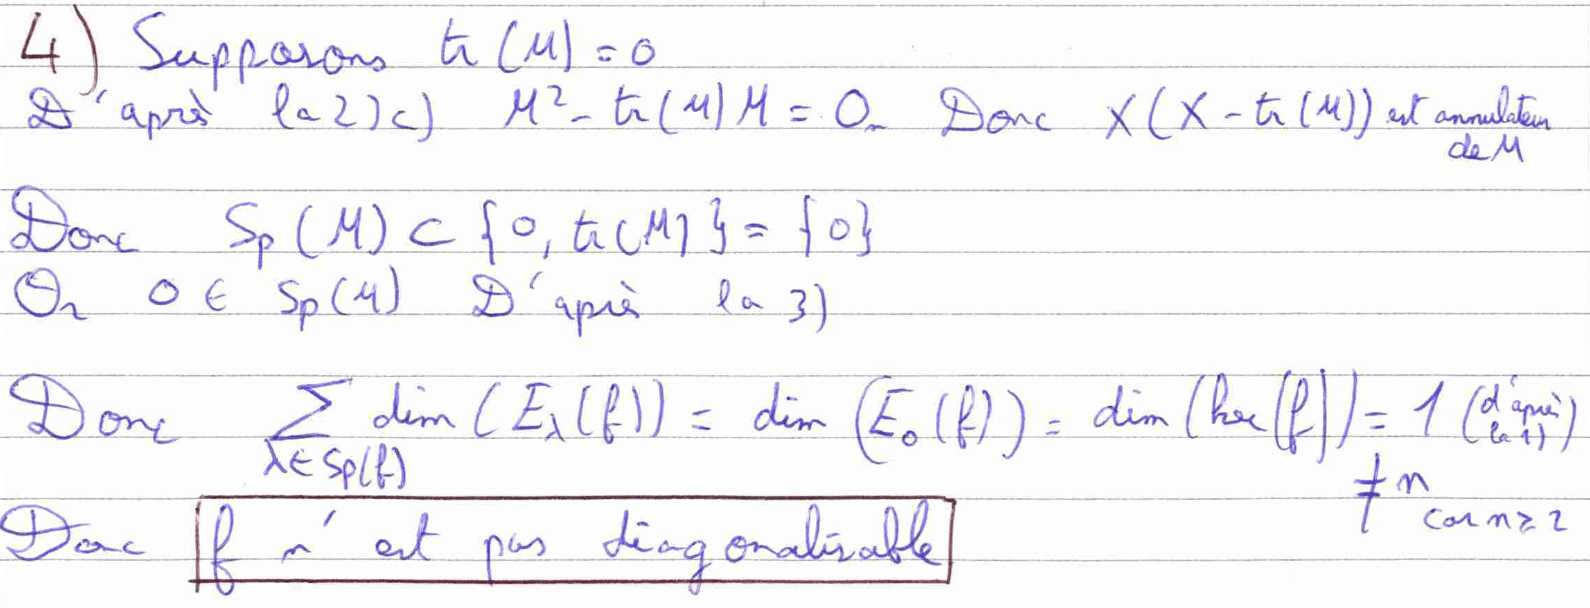 4) Supposons tr(M) = 0
D'après la 2)c) M² - tr(M)M = 0. Donc X(X - tr(M)) est annulateur
de M
Donc Sp(M) ⊂ {0, tr(M)} = {0}
Or 0 ∈ Sp(M) D'après la 3)
Donc ∑_{λ∈Sp(f)} dim(E_λ(f)) = dim(E_0(f)) = dim(ker(f)) = 1 (d'après la 1))
≠ n car n ≥ 2
Donc f n'est pas diagonalisable